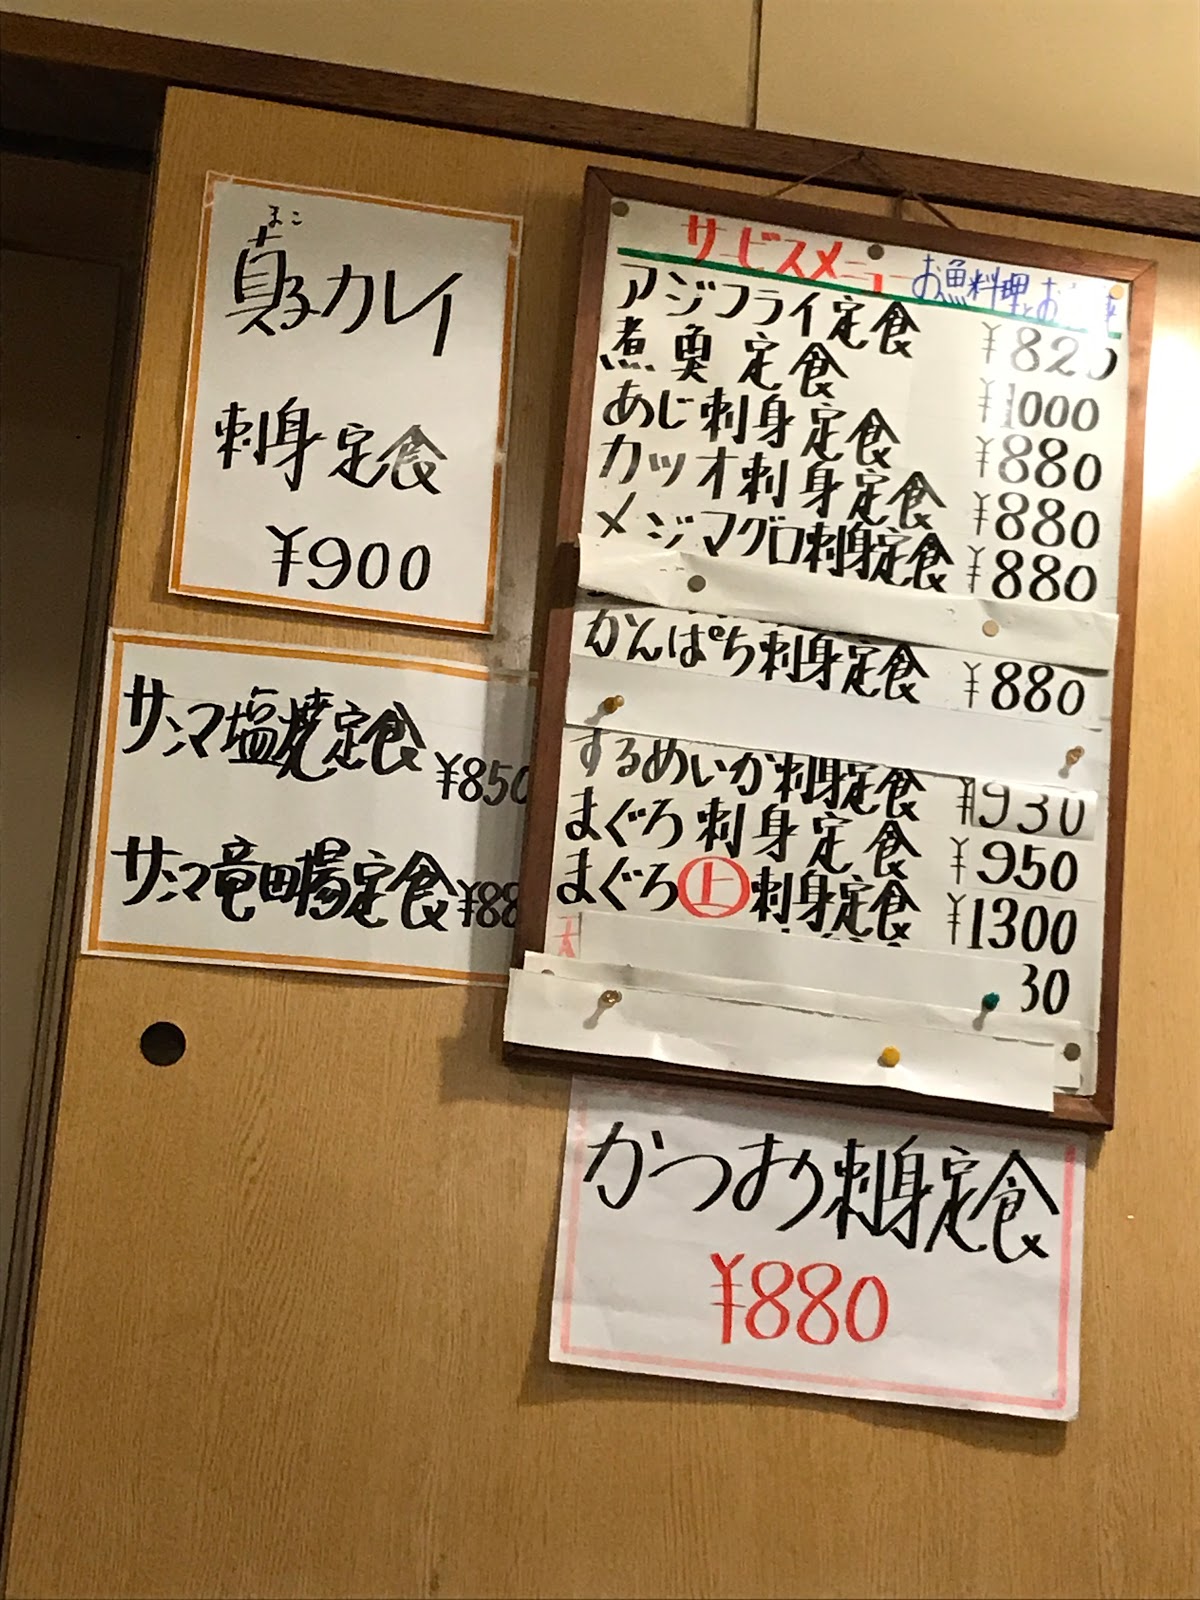 まこ
真子カレイ
刺身定食
¥900
サンマ塩焼定食
¥850
サンマ竜田揚定食
¥88
サービスメニュー
お魚料理
アジフライ定食 ¥820
煮魚定食 ¥1000
あじ刺身定食 ¥880
カツオ刺身定食 ¥880
メジマグロ刺身定食 ¥880
かんぱち刺身定食 ¥880
するめいか刺身定食 ¥930
まぐろ刺身定食 ¥950
まぐろ上刺身定食 ¥1300
30
かつお刺身定食
¥880